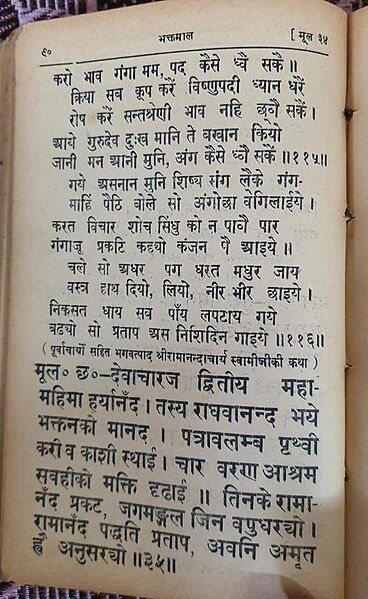 ९० भक्तमाल [ मूल ३४
करो भाव गंगा मम, पद कैसे ध्वै सकै॥
क्रिया सब कूप करैं विष्णुपदी ध्यान धरैं
रोष करैं सन्तश्रेणी भाव नहि छ्वौ सकैं।
आये गुरुदेव दुःख मानि ते बखान कियो
जानी मन आनी मुनि, अंग कैसे ध्वौ सकैं॥११५॥
गये असनान मुनि शिष्य संग लैके गंग-
माहिं पैठि बोले सो अंगोछा वेगिलाईये।
करत विचार शोच सिंधु को न पावै पार
गंगाजू प्रकटि कहयो कंजन पै आइये॥
चले सो अधर पग धरत मधुर जाय
वस्त्र हाथ दियो, लियो, नीर भीर छाइये।
निकसत धाय सव पाँय लपटाय गये
बढयो सो प्रताप अस निशिदिन गाइये॥११६॥
(पूर्वाचार्यों सहित भगवत्पाद श्रीरामानन्दाचार्य स्वामीजीकी कथा)
मूल० छ०-देवाचारज द्वितीय महा-
महिमा हर्यानँद। तस्य राघवानन्द भये
भक्तनको मानद। पत्रावलम्ब पृथ्वी
करी व काशी स्थाई। चार वरण आश्रम
सवहीको भक्ति दृढाई॥ तिनके रामा-
नँद प्रकट, जगमङ्गल जिन वपुधरयो।
रामानँद पद्धति प्रताप, अवनि अमृत
ह्वै अनुसरयो॥३५॥